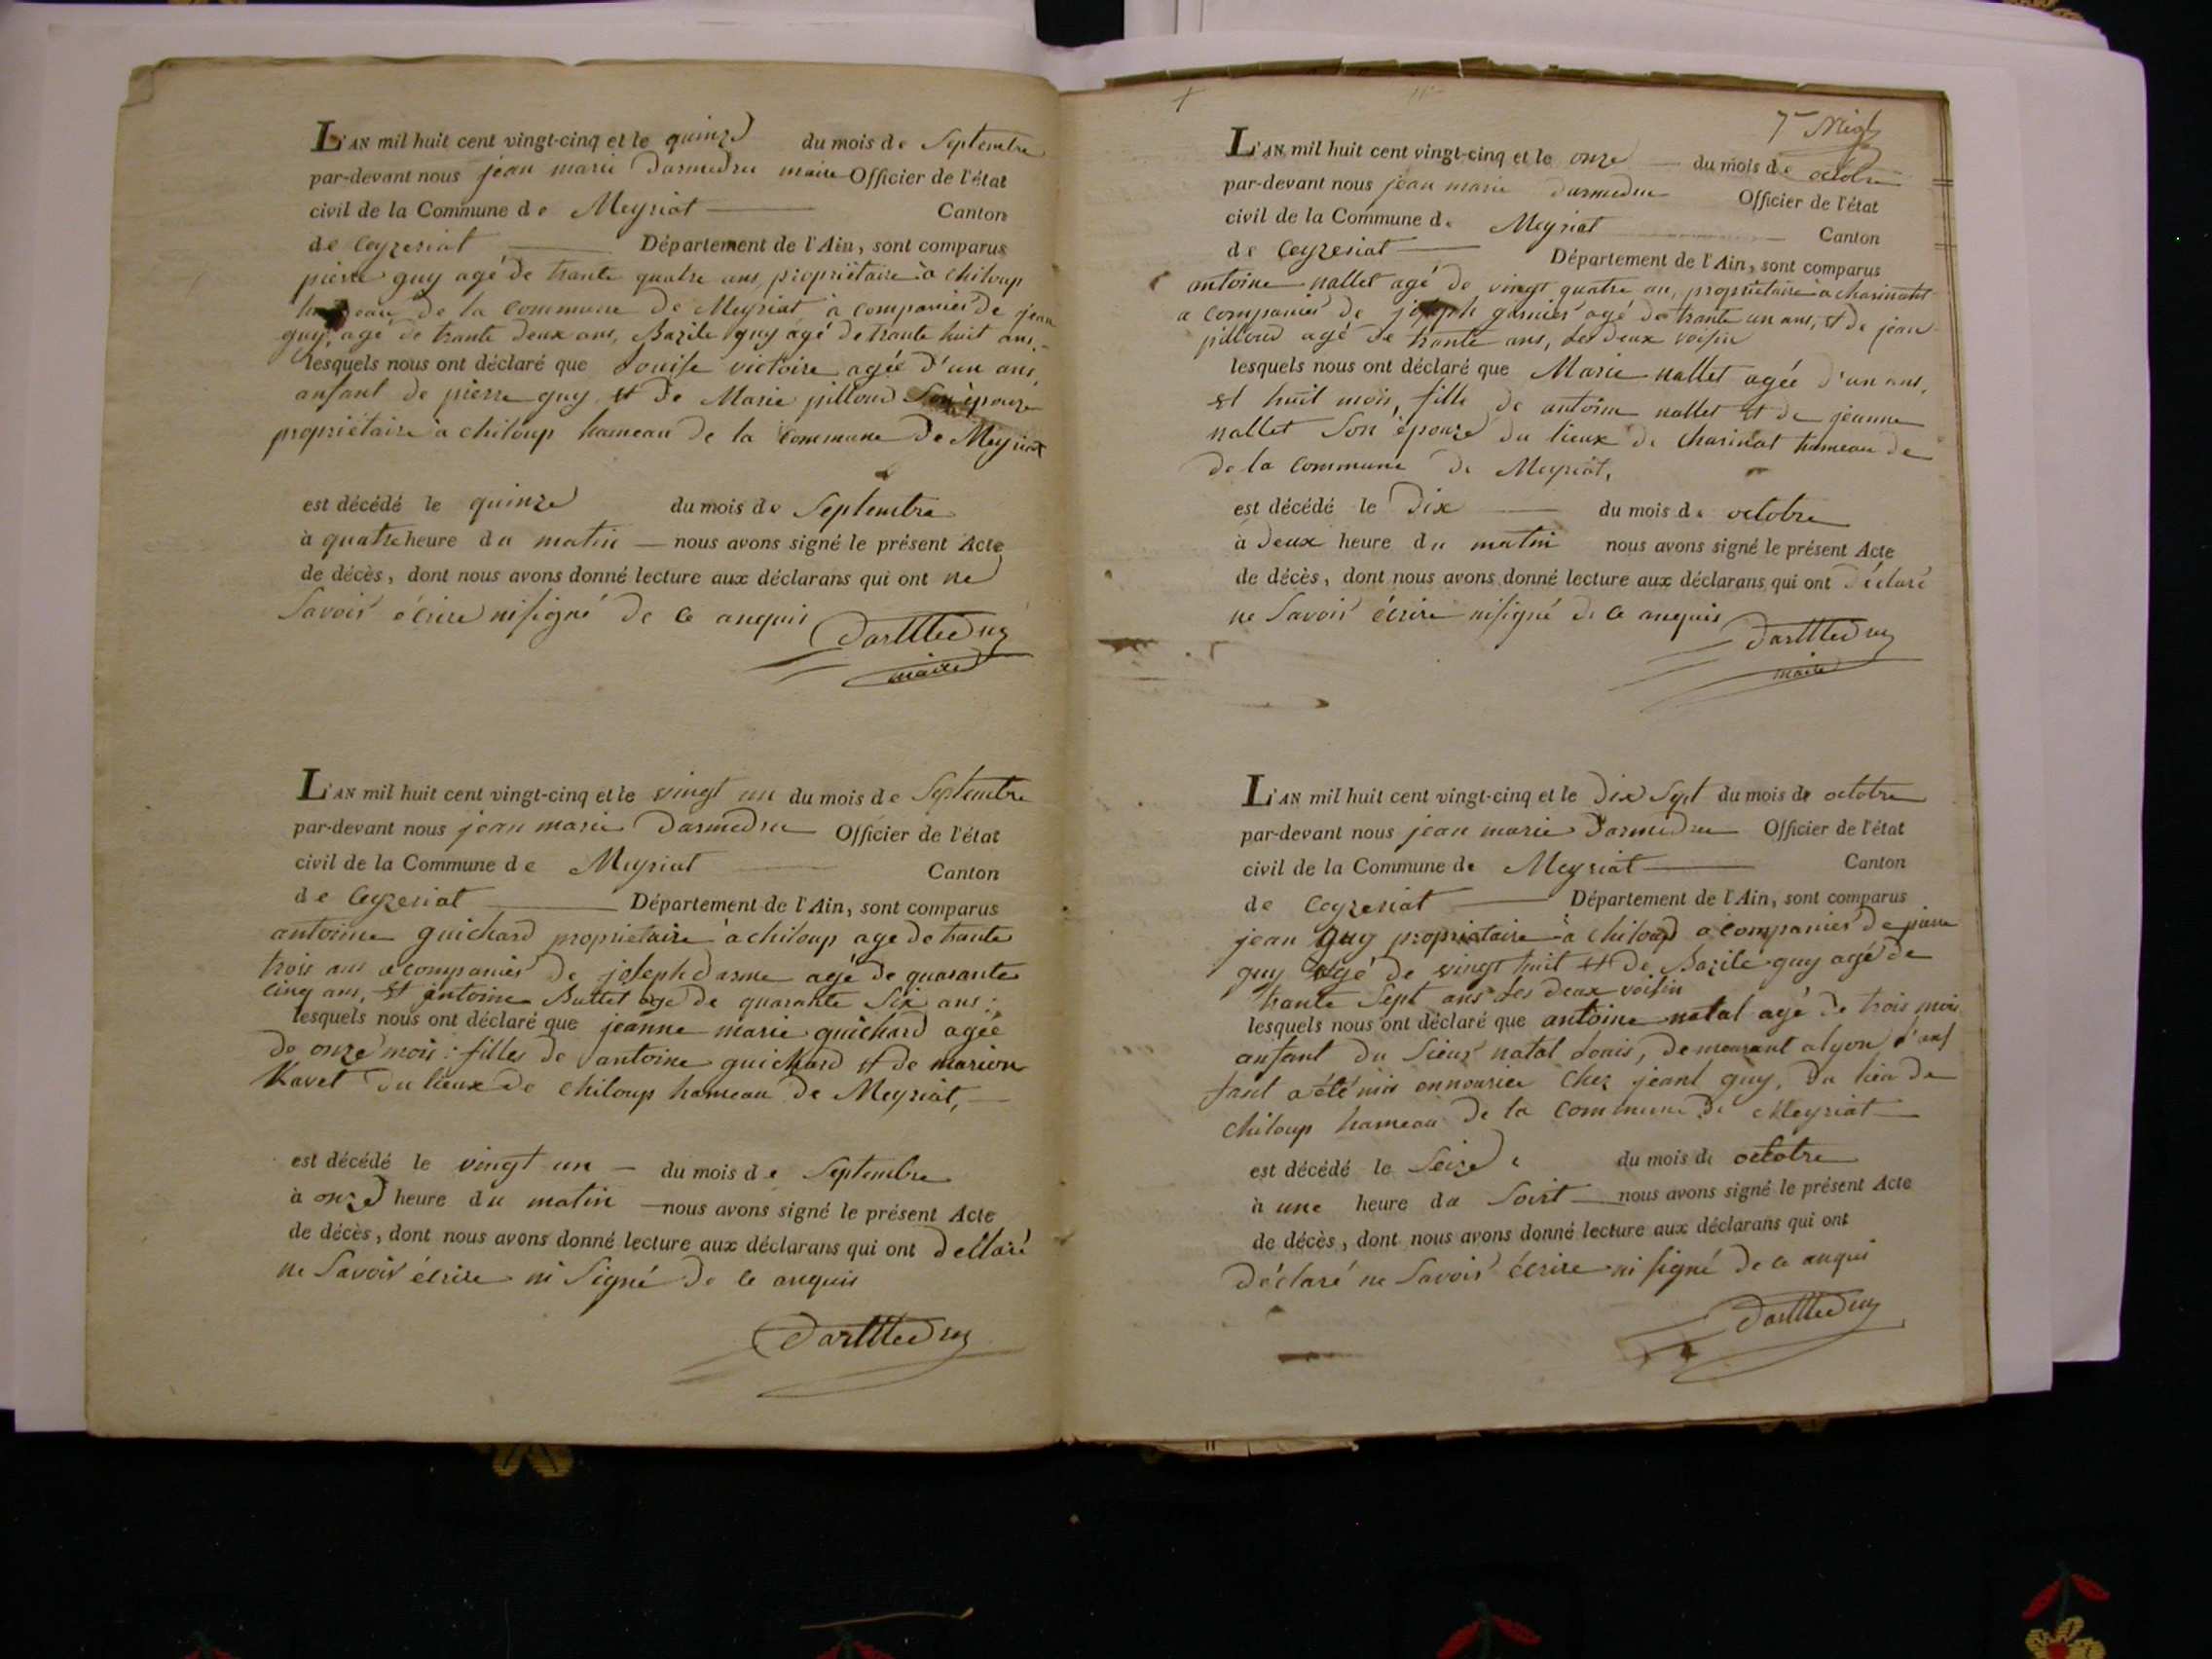 L'AN mil huit cent vingt-cinq et le quinze du mois de Septembre
par-devant nous jean marie Darmedru maire Officier de l'état
civil de la Commune de Meyriat Canton
de Ceyzeriat Département de l'Ain, sont comparus
pierre guy agé de trante quatre ans, propriétaire à chiloup
hameau de la commune de Meyriat à companiés de jean
guy, agé de trante deux ans, Bazile guy agé de trante huit ans,
lesquels nous ont déclaré que Louise victoire agée d'un ans,
anfant de pierre guy et de Marie pilloud Son épouze
propriétaire à chiloup hameau de la Commune de Meyriat
est décédé le quinze du mois de Septembre
à quatre heure du matin nous avons signé le présent Acte
de décès, dont nous avons donné lecture aux déclarans qui ont ne
Savoir écrire ni signé de ce anquis
DarMedru
maire
L'AN mil huit cent vingt-cinq et le vingt un du mois de Septembre
par-devant nous jean marie Darmedru Officier de l'état
civil de la Commune de Meyriat Canton
de Ceyzeriat Département de l'Ain, sont comparus
antoine guichard propriétaire à chiloup age de trante
trois ans acompaniés de joseph darme agé de quarante
cinq ans, et antoine Buttet age de quarante Six ans:
lesquels nous ont déclaré que jeanne marie guichard agée
de onze mois: filles de antoine guichard et de marion
Kavet du lieux de chiloup hameau de Meyriat,
est décédé le vingt un du mois de Septembre
à onze heure du matin nous avons signé le présent Acte
de décès, dont nous avons donné lecture aux déclarans qui ont dellaré
ne Savoir écrire ni Signé de ce anquis
DarMedru
7me
L'AN mil huit cent vingt-cinq et le onze du mois de octobre
par-devant nous jean marie Darmedru Officier de l'état
civil de la Commune de Meyriat Canton
de Ceyzeriat Département de l'Ain, sont comparus
antoine nallet agé de vingt quatre an, propriétaire à charinat
a companiés de joseph garnier agé de trante un ans, et de jean
pilloud agé de trante ans, les deux voisin
lesquels nous ont déclaré que Marie nallet agée d'un ans,
et huit mois, fille de antoine nallet et de jeanne
nallet Son épouze du lieux de Charinat hameau de
de la commune de Meyriat,
est décédé le Dix du mois de octobre
à deux heure du matin nous avons signé le présent Acte
de décès, dont nous avons donné lecture aux déclarans qui ont déclaré
ne Savoir écrire ni signé de ce anquis
DarMedru
maire
L'AN mil huit cent vingt-cinq et le Dix Sept du mois de octobre
par-devant nous jean marie Darmedru Officier de l'état
civil de la Commune de Meyriat Canton
de Ceyzeriat Département de l'Ain, sont comparus
jean guy propriataire à chiloup acompaniés de pierre
guy agé de vingt huit et de Bazile guy agé de
trante Sept ans les deux voisin
lesquels nous ont déclaré que antoine natal agé de trois mois
anfant du Sieur natal Louis, demeurant alyon l'anf
fant a été mis annourice chez jeant guy, du lieu de
chiloup hameau de la commune de Meyriat
est décédé le Seize du mois de octobre
à une heure du Soirt nous avons signé le présent Acte
de décès, dont nous avons donné lecture aux déclarans qui ont
déclaré ne Savoir écrire ni signé de ce anqui
DarMedru